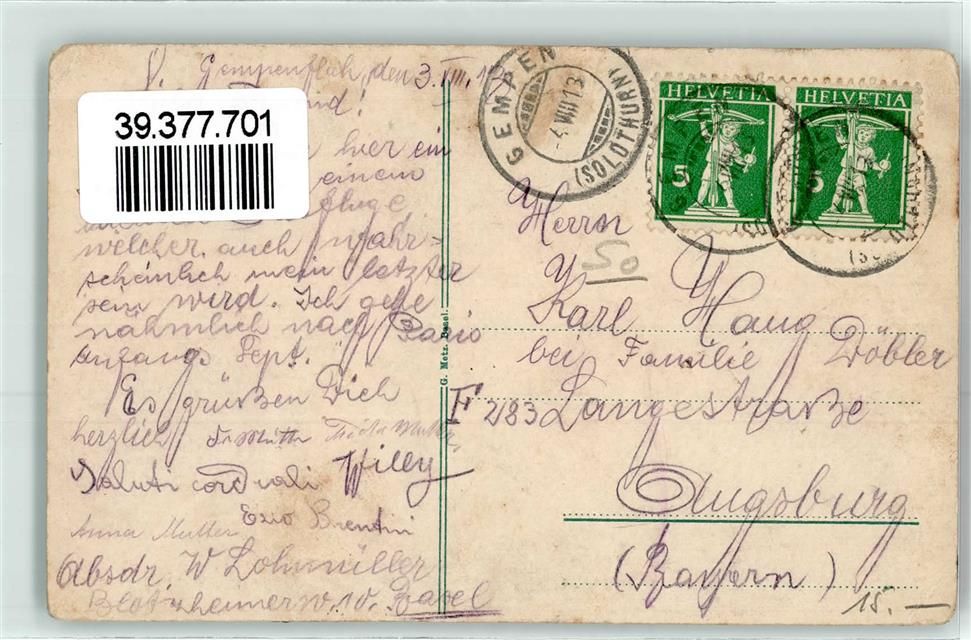 Gempenfluh, den 3. VIII. 13
39.377.701
hier ein
einem
fluge,
welcher auch wahr=
scheinlich mein letzter
sein wird. Ich gehe
nähmlich nach Paris
anfangs Sept.
Es grüßen Dich
herzlich
Willy
Saluti cordiali
Ezio Brentini
Anna Mutter
Absdr. W Lohmüller
Blotzheimerw. 10. Basel
G. Metz, Basel.
GEMPEN
(SOLOTHURN)
-4.VIII.13
HELVETIA
5
HELVETIA
5
Herrn
So
Karl Haug
bei Familie Döbler
F 283 Langestraße
Augsburg
(Bayern)
15.—